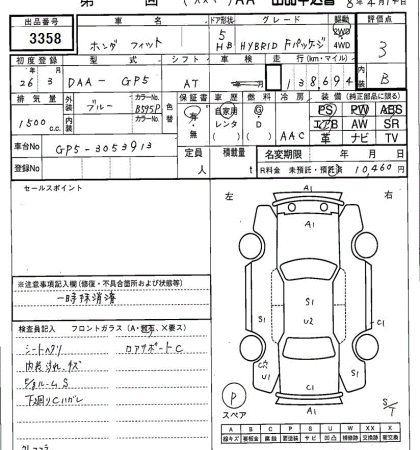 第 回 AA 出品申込書 8年4月14日
出品番号 車名 ドア形状 グレード 駆動 評価点
3358 ホンダ フィット 5 HB HYBRID Fパッケージ 2WD 4WD 3
初度登録 型式 シフト 車検 走行(km・マイル) 内装
26年3月 DAA-GP5 AT 138,694 B
排気量 外装 カラーNo. 色替 保証書 車歴 燃料 冷房 装備(純正部品に限る)
1500cc ブルー B595P 有・無 自家用 レンタ ( ) G D ( ) AAC PS PW ABS
内装 カラーNo. エアB AW SR
革 ナビ TV
車台No GP5-3053913 定員 人 積載量 t 名変期限 年 月 日
登録No R料金 未預託・預託済 10,460円
セールスポイント
左 右
A1
A1
※注意事項記入欄(修復・不具合箇所および状態等)
一時抹消済
S1
U2
S1
S1
C1
検査員記入 フロントガラス(A・飛石、×要ス)
シートヘタリ ロアサポートC
内装汚れ、キズ
下廻りCハガレ
U1
C1
A1
P
スペア
S/T
A B C P S U W XX X
線キズ 要板金 腐蝕 要塗装 サビ 凹凸 補修跡 交換跡 要交換